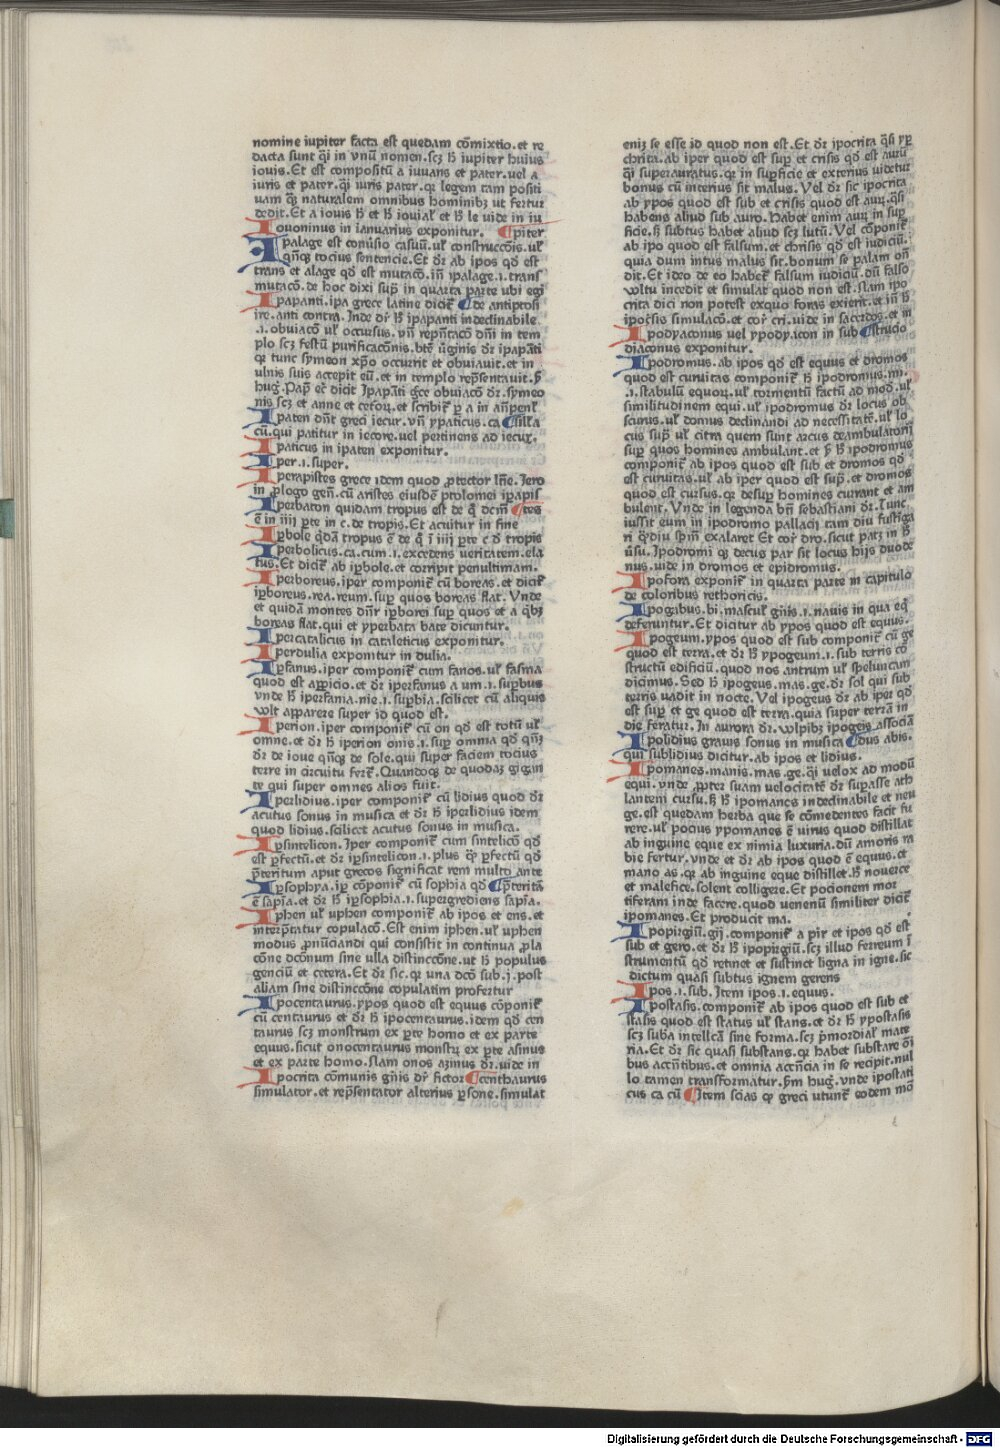 nomine iupiter facta est quedam cõmixtio.et re
dacta sunt q̃i in vnũ nomen.scꝫ h̃ iupiter huius
iouis. Et est compositũ a iuuans et pater.uel a
iuris et pater.q̃i iuris pater.qꝛ legem tam positi
uam q̃ꝫ naturalem omnibus hominibꝫ ut fertur
dedit. Et a iouis h̃ et h̃ iouial̃ et h̃ le uide in iu
Iouoninus in ianuarius exponitur. ¶piter
Ipalage est conũsio casuũ.ul̃ construccõis.ul̃
q̃nꝗꝫ tocius sentencie. Et dr̃ ab ipos qd̃ est
trans et alage qd̃ est mutacõ.iñ ipalage.i.trans
mutacõ.de hoc dixi sup̃ in quarta parte ubi egi
Ipapanti.ipa grece latine dicit̃ ¶de antiptosi
ire.anti contra. Inde dr̃ h̃ ipapanti indeclinabile
.i.obuiacõ ul̃ occursus. vñ rep̃ntacõ dñi in tem
plo scꝫ festũ purificacõnis.btẽ ũginis dr̃ ipapãti
qꝛ tunc symeon xp̃o occurrit et obuiauit.et in
ulnis suis accepit eũ.et in templo rep̃sentauit.ẜ
hug̃. Pap̃ er̃ dicit Ipapãti g̃ce obuiacõ dr̃.symeo
nis scꝫ et anne et cetoꝝ.et scribit̃ p a in añpenl̃
Ipaten dñt greci iecur. vñ ypaticus.ca ¶sill̃a
cũ.qui patitur in iecore.uel pertinens ad iecur̃
Ipaticus in ipaten exponitur.
Iper.i.super.
Iperapistes grece idem quod ꝓtector lñe. Iero
in ꝓlogo geñ.cũ aristes eiusdẽ ptolomei iꝑapis
Iperbaton quidam tropus est de q̃ dcm̃ ¶tes
ẽ in iiij ꝑte in c.de tropis. Et acuitur in fine
Iꝑbole q̃dã tropus ẽ de q̃ ĩ iiij ꝑte c d̃ tropis
Iperbolicus.ca.cum.i.excedens ueritatem.ela
tus. Et dicit̃ ab iꝑbole.et corripit penultimam.
Iperboreus.iper componit̃ cũ boreas.et dicit̃
iꝑboreus.rea.reum.sup̃ quos boreas flat. Vnde
et quidã montes dñr iꝑborei sup̃ quos et a q̃bꝫ
boreas flat.qui et yperbata bate dicuntur.
Ipercatalicus in cataleticus exponitur.
Iperdulia exponitur in dulia.
Iꝑfanus.iper componit̃ cum fanos.ul̃ fasma
quod est appicio.et dr̃ iperfanus a um.i.suꝑbus
vnde h̃ iperfania.nie.i.suꝑbia.scilicet cũ aliquis
vult apparere super id quod est.
Iperion.iper componit̃ cũ on qd̃ est totũ ul̃
omne.et dr̃ h̃ iperion onis.i.sup̃ omnia qd̃ q̃nꝫ
dr̃ de ioue q̃nꝗꝫ de sole.qui super faciem tocius
terre in circuitu fert̃. Quandoꝗꝫ de quodaꝫ gigan
te qui super omnes alios fuit.
Iperlidius.iper componit̃ cũ lidius quod dr̃
acutus sonus in musica et dr̃ h̃ iperlidius idem
quod lidius.scilicet acutus sonus in musica.
Iꝑsintelicon. Iper componit̃ cum sintelicõ qd̃
est ꝑfectũ.et dr̃ iꝑsintelicon.i.plus q̃ꝫ ꝑfectũ qd̃
p̃teritum aput grecos significat rem multo ante
Iꝑsophya.iꝑ cõponit̃ cũ sophia qd̃ ¶p̃teritã
ẽ sapĩa.et dr̃ h̃ iꝑsophia.i.supergrediens sapĩa.
Iphen ul̃ uphen componit̃ ab ipos et ens.et
interp̃tatur copulacõ. Est enim iphen.ul̃ uphen
modus ꝓnũciandi qui consistit in continua ꝓla
cõne dcõnum sine ulla distinccõne.ut h̃ populus
genciũ et cetera. Et dr̃ sic.qꝛ una dcõ sub.j.post
aliam sine distinccõne copulatim profertur
Ipocentaurus.ypos quod est equus cõponit̃
cũ centaurus et dr̃ h̃ ipocentaurus.idem qd̃ cen
taurus scꝫ monstrum ex ꝑte homo et ex parte
equus.sicut onocentaurus monstrꝝ ex ꝑte asinus
et ex parte homo.nam onos azinus dr̃.uide in
Ipocrita cõmunis g̃nis dr̃ fictor ¶centhaurus
simulator.et rep̃sentator alterius ꝑsone.simulat
enĩꝫ se esse id quod non est. Et dr̃ ipocrita q̃si yp
chrita.ab iper quod est sup̃ et crisis qd̃ est aurũ
q̃i superauratus.qꝛ in suꝑficie et exterius uidetur
bonus cũ interius sit malus. Vel dr̃ sic ipocrita
ab ypos quod est sub et crisis quod est aurꝝ.q̃si
habens aliud sub auro. Habet enim aurꝝ in sup̃
ficie.h̃ subtus habet aliud scꝫ lutũ. Vel cõponit̃
ab ipo quod est falsum.et chrisis qd̃ est iudiciũ.
quia dum intus malus sit.bonum se palam oñ
dit. Et ideo de eo habet̃ falsum iudiciũ.dũ falso
vultu incedit et simulat quod non est.nam ipo
crita dici non potest exquo foras exierit.et iñ h̃
ipocr̃sis simulacõ.et cor̃ cri.uide in sacerdos.et in
Ipodyaconus uel ypodyacon in sub ¶strucio
diaconus exponitur.
Ipodromus.ab ipos qd̃ est equus et dromos
quod est curuitas componit̃ h̃ ipodromus.mi.
.i.stabulũ equoꝝ.ul̃ tormentũ factũ ad modũ.ul̃
similitudinem equi.ul̃ ipodromus dr̃ locus ob
scurus.ul̃ domus declinandi ad necessitatẽ.ul̃ lo
cus sup̃ ul̃ citra quem sunt arcus deambulatorij
sup̃ quos homines ambulant.et ẜ h̃ ipodromus
componit̃ ab ipos quod est sub et dromos qd̃
est curuitas.ul̃ ab iper quod est sup̃.et dromos
quod est cursus.qꝛ desup̃ homines currant et am
bulent. Vnde in legenda bñ sebastiani dr̃. Tunc
iussit eum in ipodromo pallacij tam diu fustiga
ri q̃diu sp̃m exalaret Et cor̃ dro.sicut patꝫ in h̃
ũsu. Ipodromi qꝫ decus par sit locus hijs duode
nus.uide in dromos et epidromus.
Ipofora exponit̃ in quarta parte in capitulo
de coloribus rethoricis.
Ipogabus.bi.mascul̃ g̃nis.i.nauis in qua eq̃
deferuntur. Et dicitur ab ypos quod est equus.
Ipogeum.ypos quod est sub componit̃ cũ ge
quod est terra.et dr̃ h̃ ypogeum.i.sub terris cõ
structũ edificiũ.quod nos antrum ul̃ speluncam
dicimus. Sed h̃ ipogeus.mas.ge.dr̃ sol qui sub
terris uadit in nocte. Vel ipogeus dr̃ ab iper qd̃
est sup̃ et ge quod est terra.quia super terrã in
die feratur. In aurora dr̃.wlpibꝫ ipogeis associã
Ipolidius grauis sonus in musica ¶dus abis.
qui sublidius dicitur.ab ipos et lidius.
Ipomanes.manis.mas.ge.q̃i uelox ad modũ
equi.vnde ꝓpter suam velocitatẽ dr̃ suꝑasse ath
lanteni cursu.h̃ h̃ ipomanes indeclinabile et neu
ge.est quedam herba que se cõmedentes facit fu
rere.ul̃ pocius ypomanes ẽ virus quod distillat
ab inguine eque ex nimia luxuria.dũ amoris ra
bie fertur.vnde et dr̃ ab ipos quod ẽ equus.et
mano as.qꝛ ab inguine eque distillet.h̃ nouerce
et malefice.solent colligere. Et pocionem mor
tiferam inde facere.quod uenenũ similiter dicit̃
ipomanes. Et producit ma.
Ipopirgiũ.gij.componit̃ a pir et ipos qd̃ est
sub et gero.et dr̃ h̃ ipopirgiũ.scꝫ illud ferreum ĩ
strumentũ qd̃ retinet et sustinet ligna in igne.sic
dictum quasi subtus ignem gerens
Ipos.i.sub. Item ipos.i.equus.
Ipostasis.componit̃ ab ipos quod est sub et
stasis quod est status ul̃ stans.et dr̃ h̃ ypostasis
scꝫ suba intellcã sine forma.scꝫ p̃mordial̃ mate
ria. Et dr̃ sic quasi substans.qꝛ habet substare oĩ
bus accñtibus.et omnia accñcia in se recipit.nul
lo tamen transformatur.ẜm hug̃.vnde ipostati
cus ca cũ ¶Item scias qꝫ greci utunt̃ eodem mõ
Digitalisierung gefördert durch die Deutsche Forschungsgemeinschaft - DFG